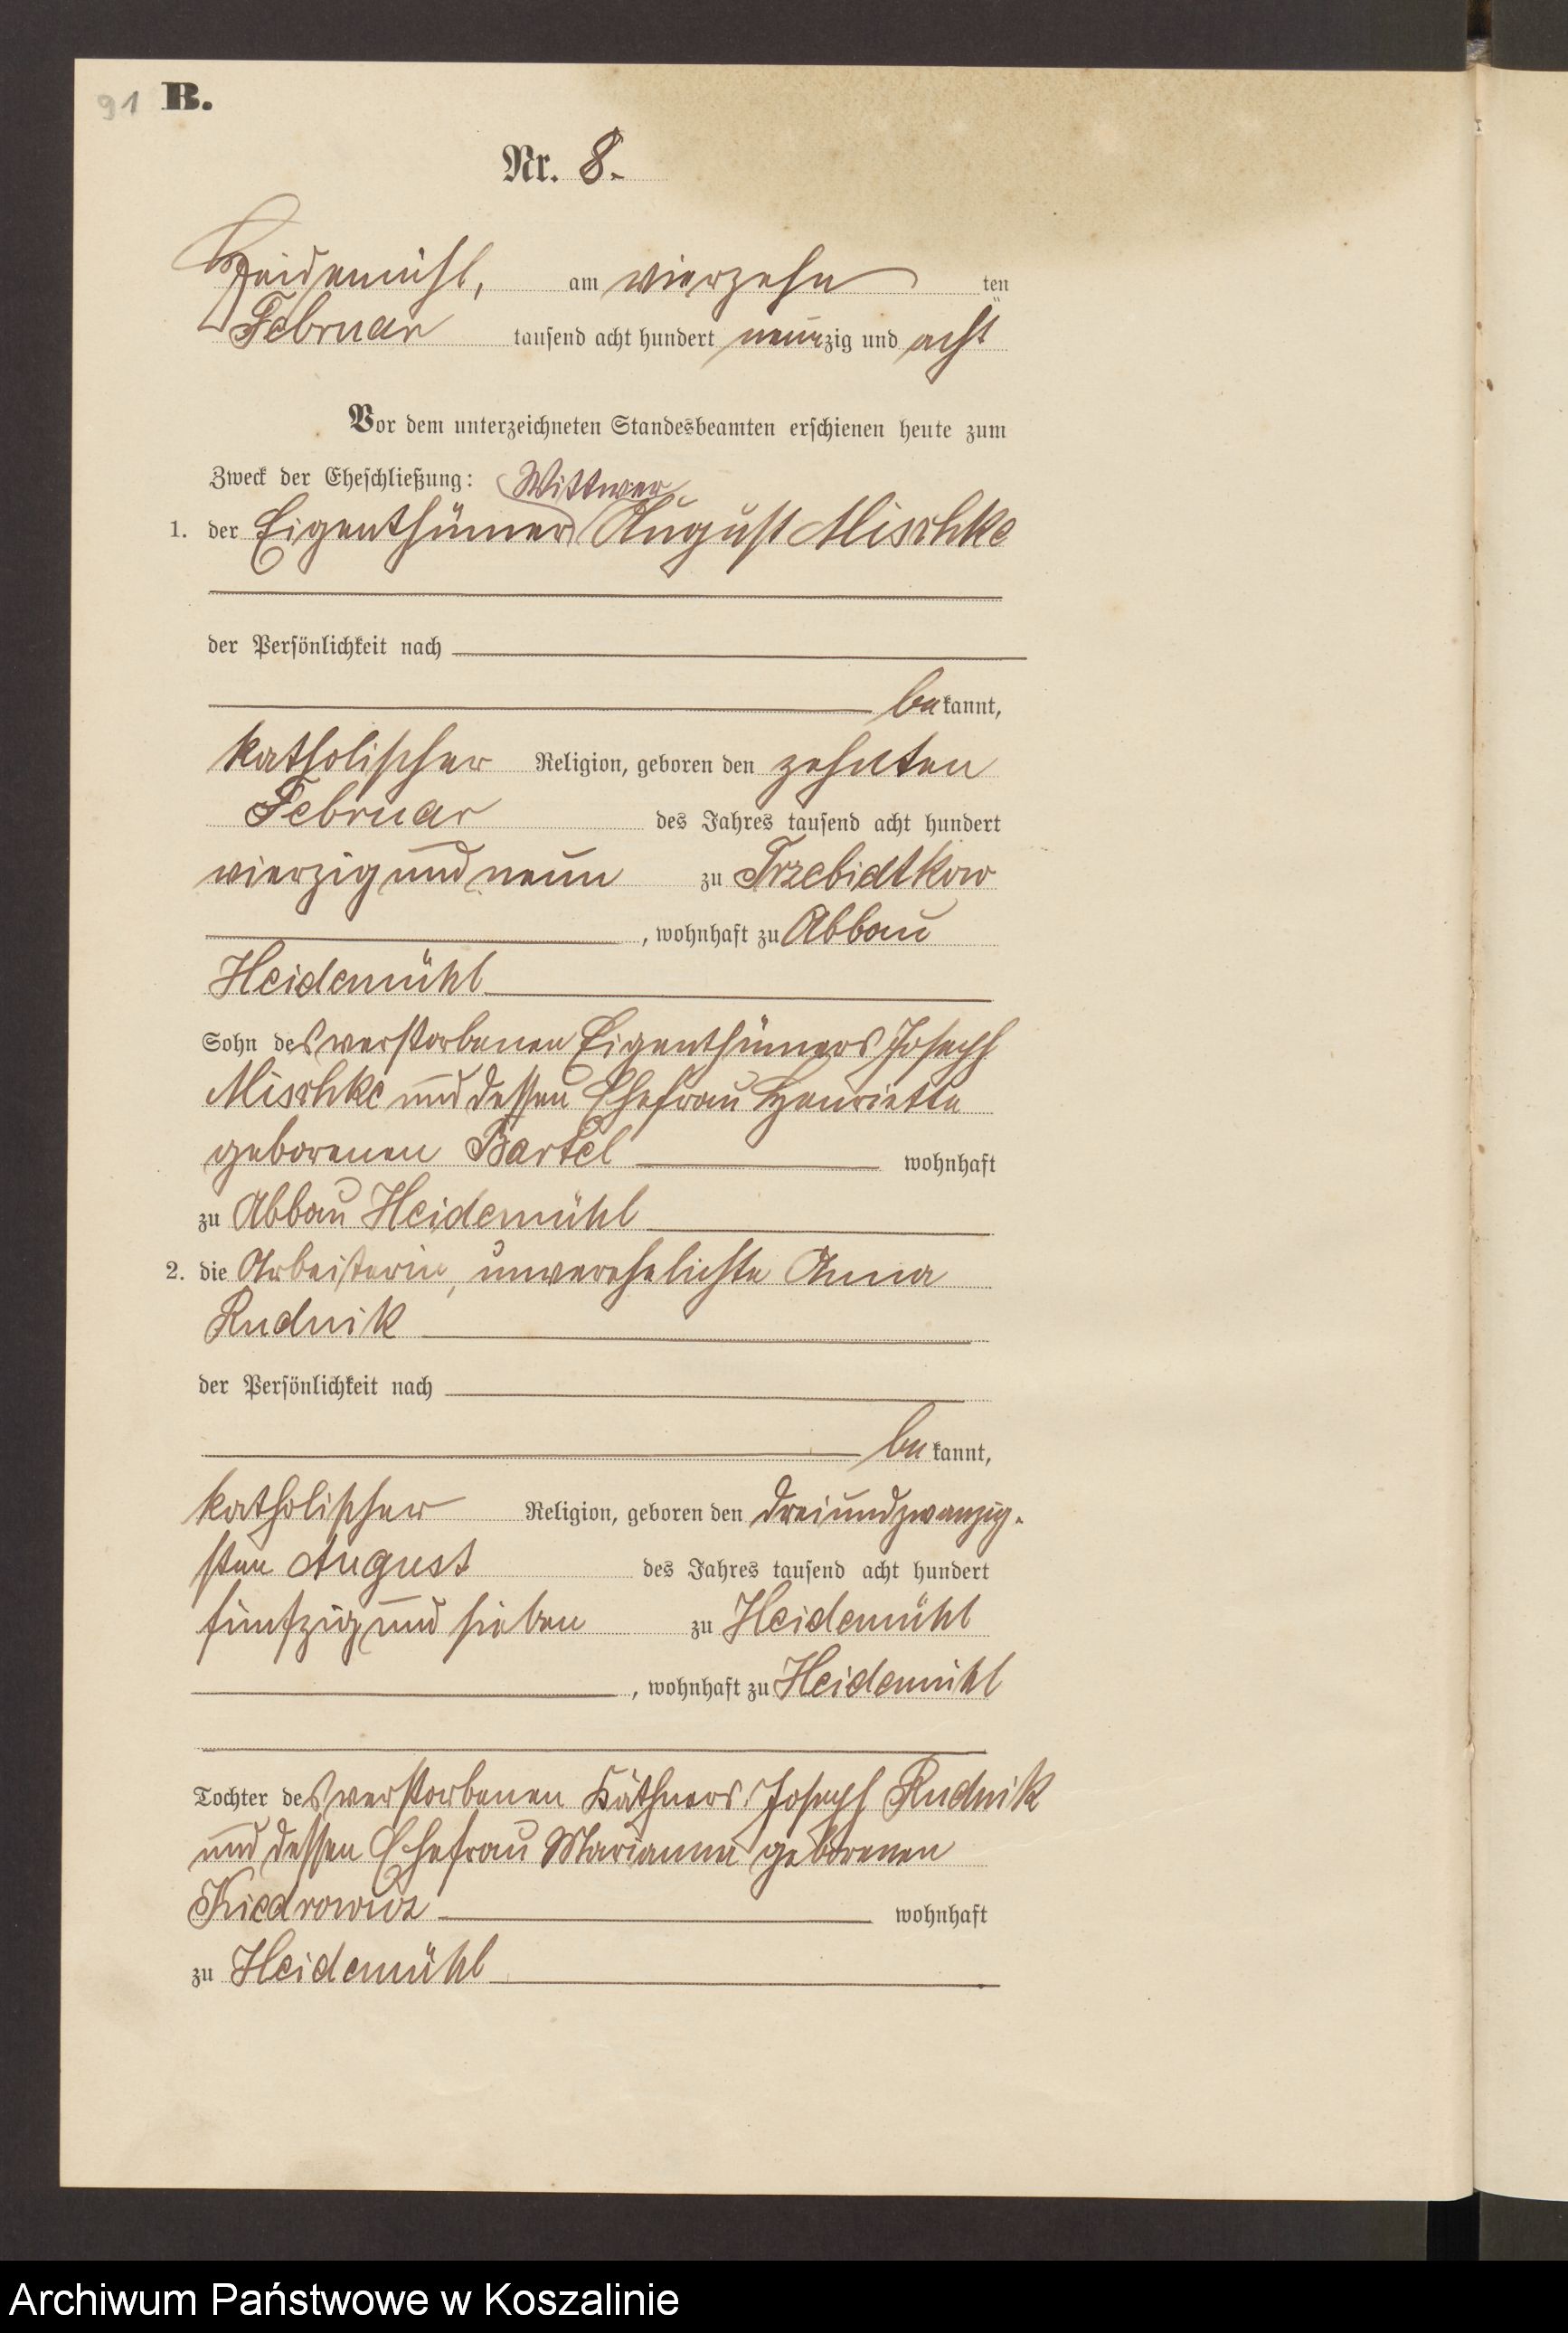 91 B.
Nr. 8.
Heidemühl, am vierzehn ten
Februar tausend acht hundert neunzig und acht
Vor dem unterzeichneten Standesbeamten erschienen heute zum
Zweck der Eheschließung: Wittwer
1. der Eigenthümer August Mischke
der Persönlichkeit nach
bekannt,
katholischer Religion, geboren den zehnten
Februar des Jahres tausend acht hundert
vierzig und neun zu Trzebiatkow
, wohnhaft zu Abbau
Heidemühl
Sohn des verstorbenen Eigenthümers Joseph
Mischke und dessen Ehefrau Henriette
geborenen Bartel wohnhaft
zu Abbau Heidemühl
2. die Arbeiterin, unverehelichte Anna
Rudnik
der Persönlichkeit nach
bekannt,
katholischer Religion, geboren den dreiundzwanzig-
sten August des Jahres tausend acht hundert
fünfzig und sieben zu Heidemühl
, wohnhaft zu Heidemühl
Tochter des verstorbenen Käthners Joseph Rudnik
und dessen Ehefrau Marianna geborenen
Kiedrowicz wohnhaft
zu Heidemühl
Archiwum Państwowe w Koszalinie